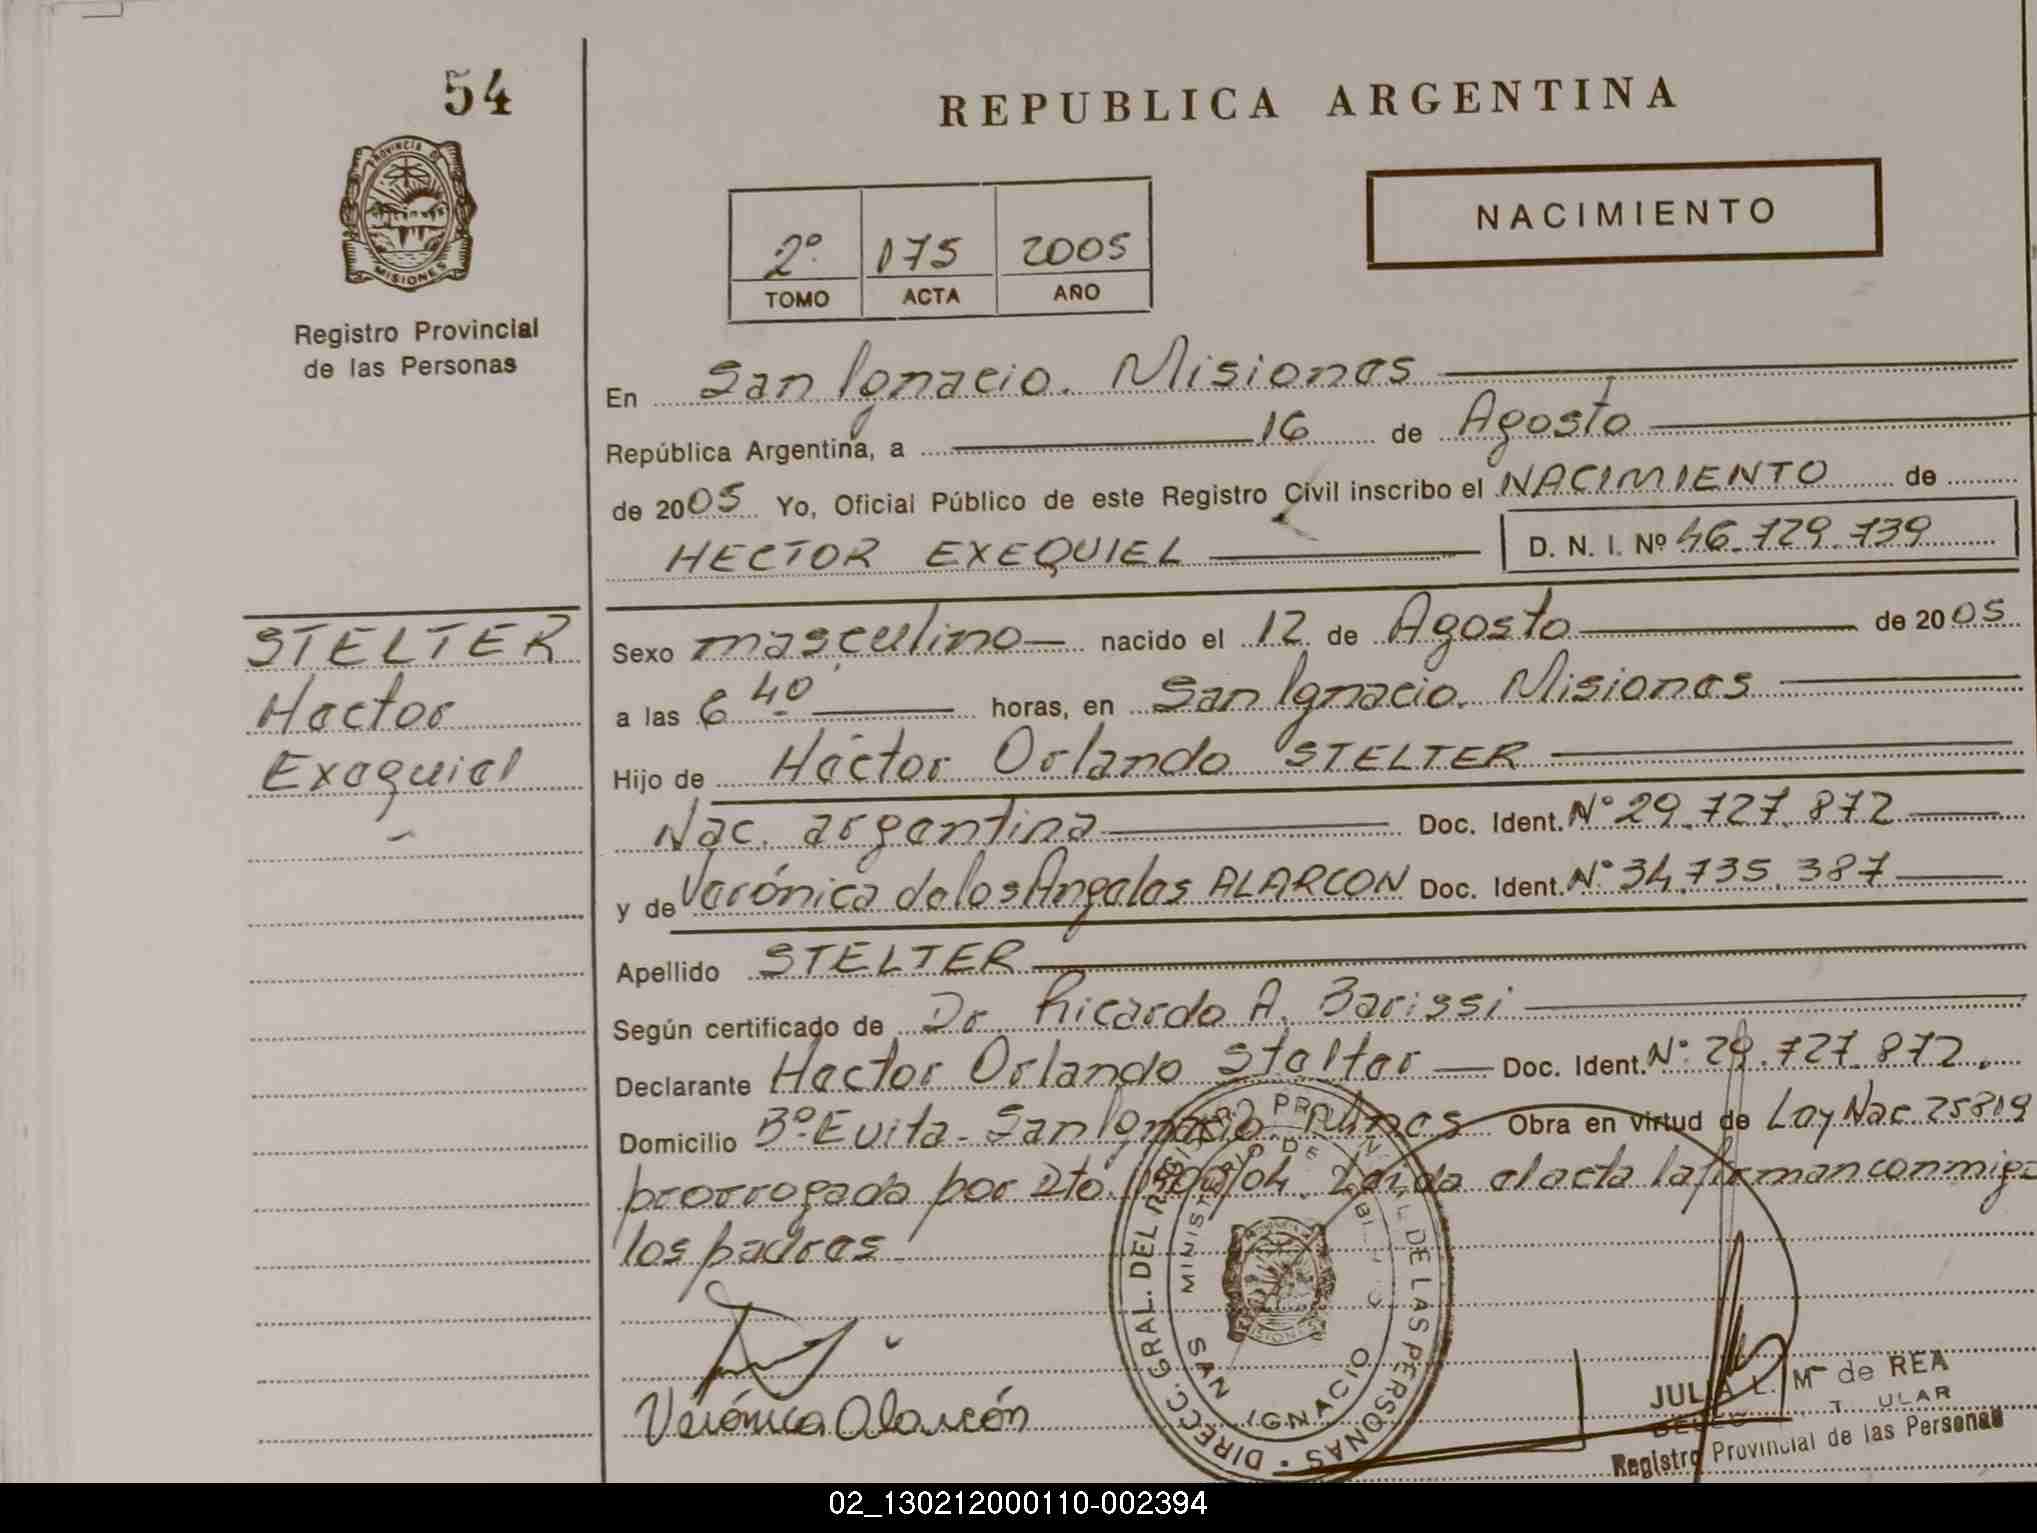 54
REPUBLICA ARGENTINA
PROVINCIA DE
MISIONES
NACIMIENTO
2º 175 2005
TOMO ACTA AÑO
Registro Provincial
de las Personas
En San Ignacio. Misiones
República Argentina, a 16 de Agosto
de 2005 Yo, Oficial Público de este Registro Civil inscribo el NACIMIENTO de
HECTOR EXEQUIEL D. N. I. Nº 46.729.739
STELTER
Hector
Exequiel
Sexo masculino nacido el 12 de Agosto de 2005
a las 6 40 horas, en San Ignacio. Misiones
Hijo de Héctor Orlando STELTER
Nac. argentina Doc. Ident. Nº 29.727.872
y de Verónica de los Angeles ALARCON Doc. Ident. Nº 34.735.387
Apellido STELTER
Según certificado de Dr. Ricardo A. Barissi
Declarante Hector Orlando Stelter Doc. Ident. Nº 29.727.872.
Domicilio Bº Evita - San Ignacio Mnes Obra en virtud de Ley Nac. 25819
prorrogada por Dto. /04. Leída el acta la firman conmigo
los padres
Verónica Alarcón
DIRECC. GRAL. DEL REGISTRO PROVINCIAL DE LAS PERSONAS
MINISTERIO DE
SAN IGNACIO
MISIONES
JULIA L. M de REA
Registro Provincial de las Personas
02_130212000110-002394